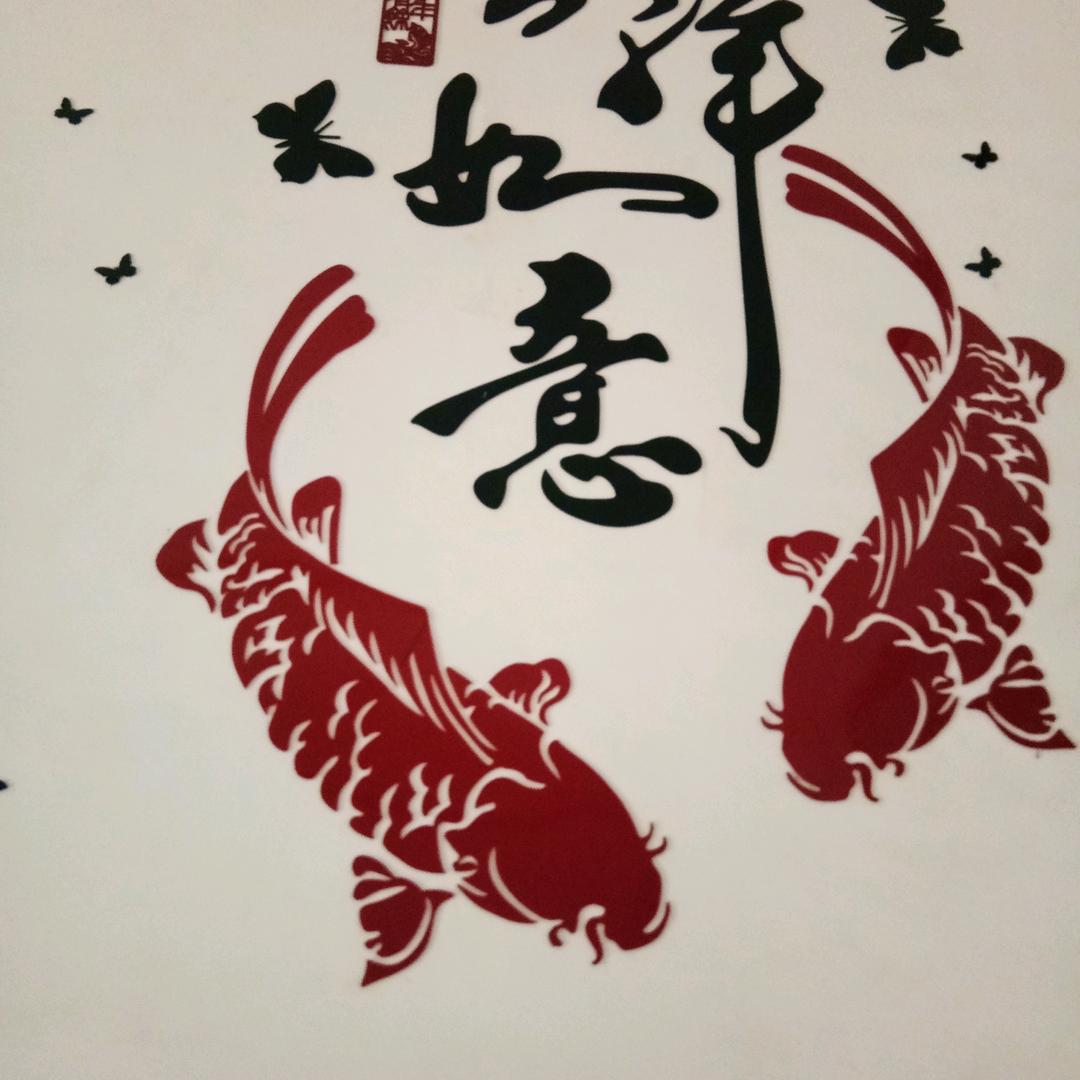 祥
如
意